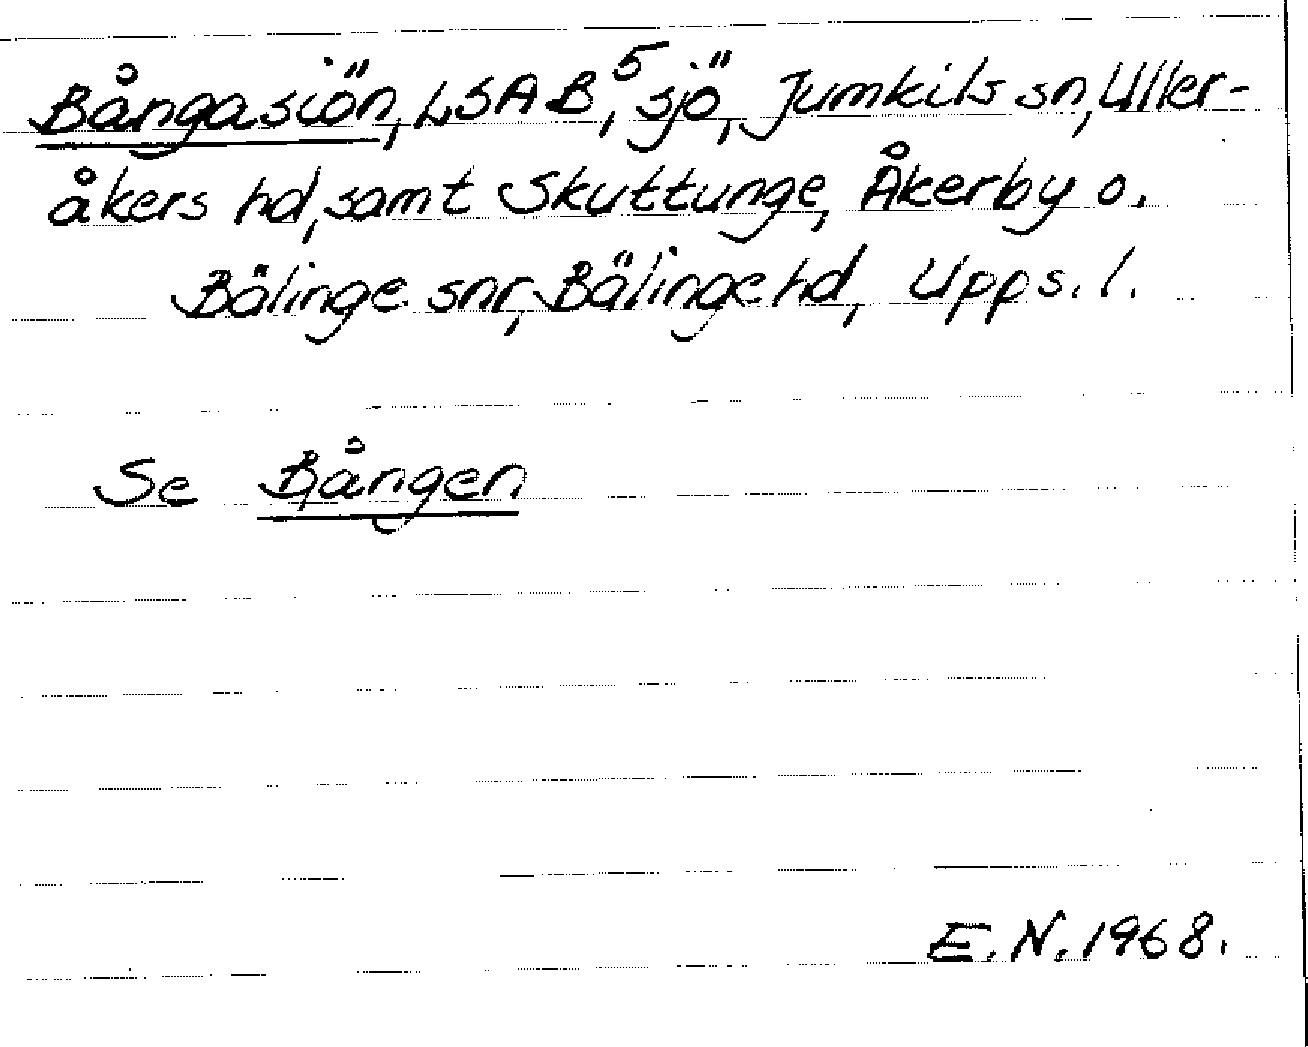 Bångasiön, LSA B⁵, sjö, Jumkils sn, Uller-
åkers hd, samt Skuttunge, Åkerby o.
Bälinge snr, Bälinge hd, Upps. l.
Se Bången
E. N. 1968.